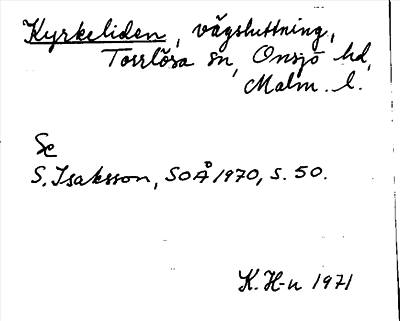 Kyrkeliden, vägsluttning,
Torrlösa sn, Onsjö hd,
Malm. l.
Se
S. Isaksson, SOÅ 1970, s. 50.
K. H-n 1971